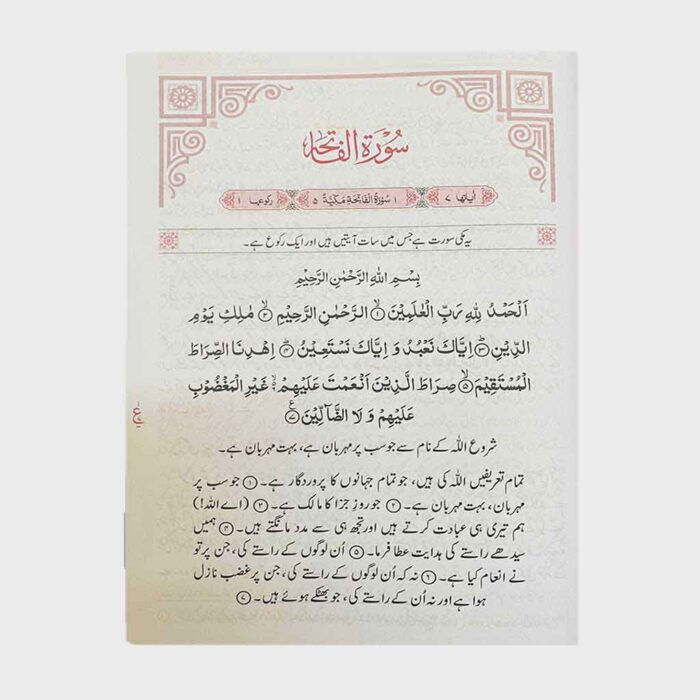 سُوْرَةُ الْفَاتِحَةِ
اٰیاتها ۷ ۱ سُوْرَةُ الْفَاتِحَةِ مَكِّيَّةٌ ۵ رکوعها ۱
یہ مکی سورت ہے جس میں سات آیتیں ہیں اور ایک رکوع ہے۔
بِسْمِ اللهِ الرَّحْمٰنِ الرَّحِيْمِ
اَلْحَمْدُ لِلّٰهِ رَبِّ الْعٰلَمِيْنَ ۙ﴿۱﴾ الرَّحْمٰنِ الرَّحِيْمِ ۙ﴿۲﴾ مٰلِكِ يَوْمِ
الدِّيْنِ ؕ﴿۳﴾ اِيَّاكَ نَعْبُدُ وَ اِيَّاكَ نَسْتَعِيْنُ ؕ﴿۴﴾ اِهْدِنَا الصِّرَاطَ
الْمُسْتَقِيْمَ ۙ﴿۵﴾ صِرَاطَ الَّذِيْنَ اَنْعَمْتَ عَلَيْهِمْ ۙ۬ غَيْرِ الْمَغْضُوْبِ
عَلَيْهِمْ وَ لَا الضَّآلِّيْنَ ﴿۷﴾
شروع اللہ کے نام سے جو سب پر مہربان ہے، بہت مہربان ہے۔
تمام تعریفیں اللہ کی ہیں، جو تمام جہانوں کا پروردگار ہے۔ ﴿۱﴾ جو سب پر
مہربان، بہت مہربان ہے۔ ﴿۲﴾ جو روزِ جزا کا مالک ہے۔ ﴿۳﴾ (اے اللہ!)
ہم تیری ہی عبادت کرتے ہیں اور تجھ ہی سے مدد مانگتے ہیں۔ ﴿۴﴾ ہمیں
سیدھے راستے کی ہدایت عطا فرما۔ ﴿۵﴾ اُن لوگوں کے راستے کی، جن پر تو
نے انعام کیا ہے۔ ﴿۶﴾ نہ کہ اُن لوگوں کے راستے کی، جن پر غضب نازل
ہوا ہے اور نہ اُن کے راستے کی، جو بھٹکے ہوئے ہیں۔ ﴿۷﴾